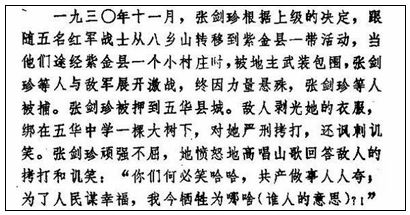 一九三〇年十一月，张剑珍根据上级的决定，跟
随五名红军战士从八乡山转移到紫金县一带活动，当
他们途经紫金县一个小村庄时，被地主武装包围，张剑
珍等人与敌军展开激战，终因力量悬殊，张剑珍等人
被捕。张剑珍被押到五华县城。敌人剥光她的衣服，
绑在五华中学一棵大树下，对她严刑拷打，还讽刺讥
笑。张剑珍顽强不屈，她愤怒地高唱山歌回答敌人的
拷打和讥笑：“你们何必笑哈哈，共产做事人人夸；
为了人民谋幸福，我今牺牲为哪哈（谁人的意思）?！”